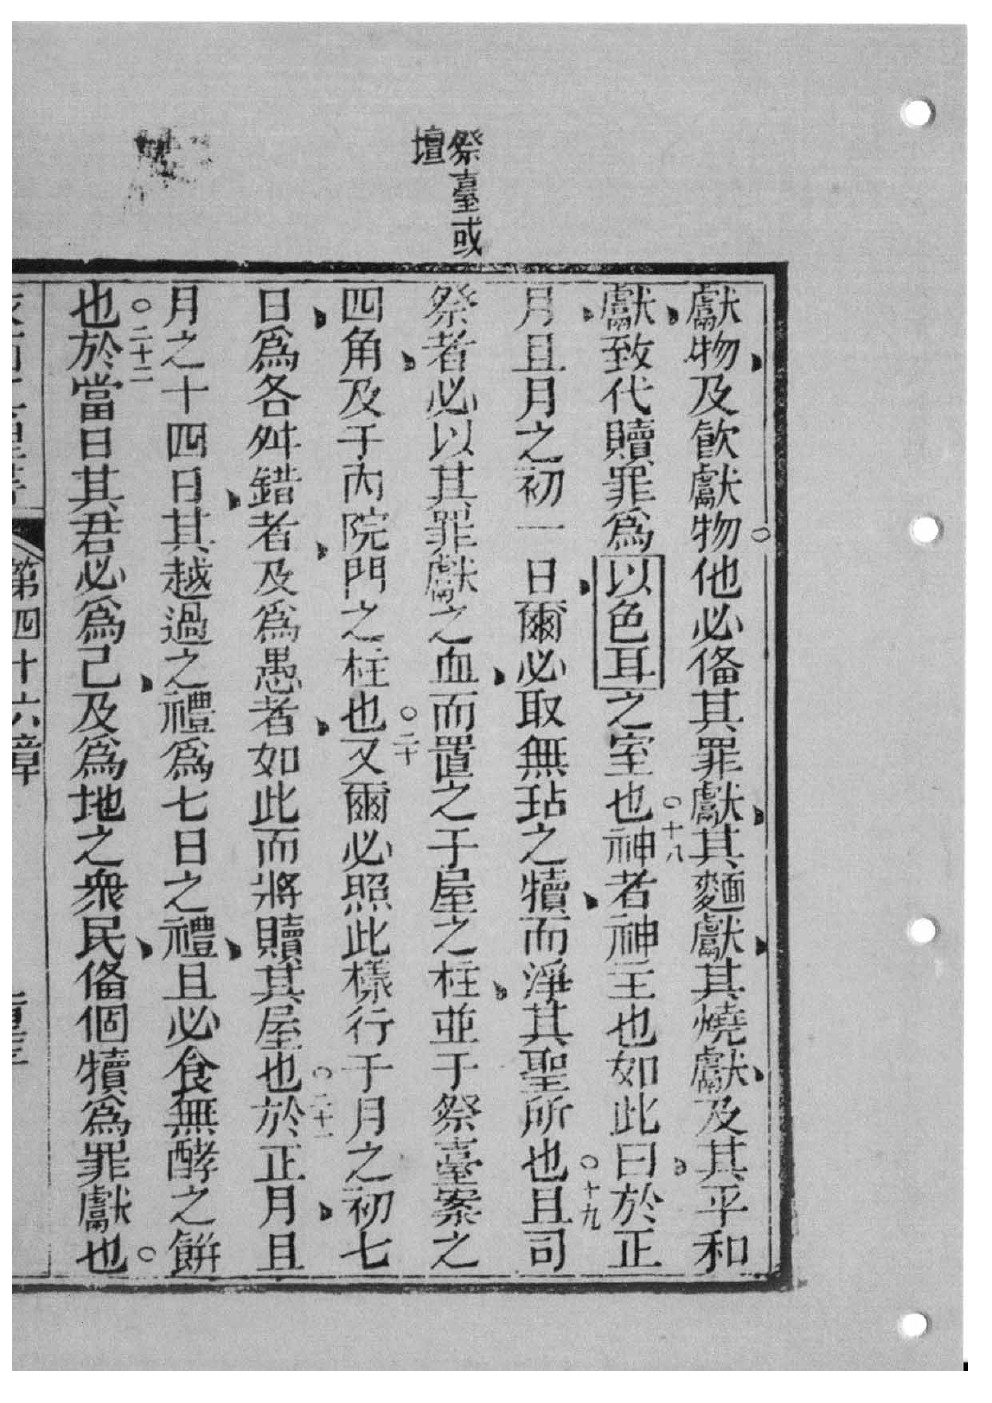 祭臺或
壇
獻物及飮獻物他必俻其罪獻其麵獻其燒獻及其平和
獻致代贖罪爲以色耳之室也○十八神者神主也如此曰於正
月且月之初一日爾必取無玷之犢而淨其聖所也○十九且司
祭者必以其罪獻之血而置之于屋之柱並于祭臺案之
四角及于內院門之柱也○二十又爾必照此樣行于月之初七
日爲各舛錯者及爲愚者如此而將贖其屋也○二十一於正月且
月之十四日其越過之禮爲七日之禮且必食無酵之餠
也○二十二於當日其君必爲己及爲地之衆民俻個犢爲罪獻也○
第四十六章